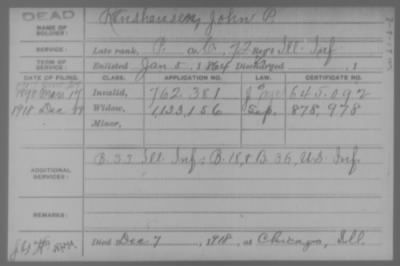 DEAD
NAME OF SOLDIER: John P.
SERVICE: Late rank, P. Co. B, 72 Reg't Ill. Inf.
TERM OF SERVICE: Enlisted Jan 5, 1864 Discharged , 1
DATE OF FILING. CLASS. APPLICATION NO. LAW. CERTIFICATE NO.
Invalid, 762.381 645.092
1918 Dec Widow, 1,133,156 Sep. 878,978
Minor,
ADDITIONAL SERVICES: B. 33 Ill. Inf; B. 18, & B. 36, U.S. Inf.
REMARKS:
Died Dec 7, 1918, at Chicago, Ill.